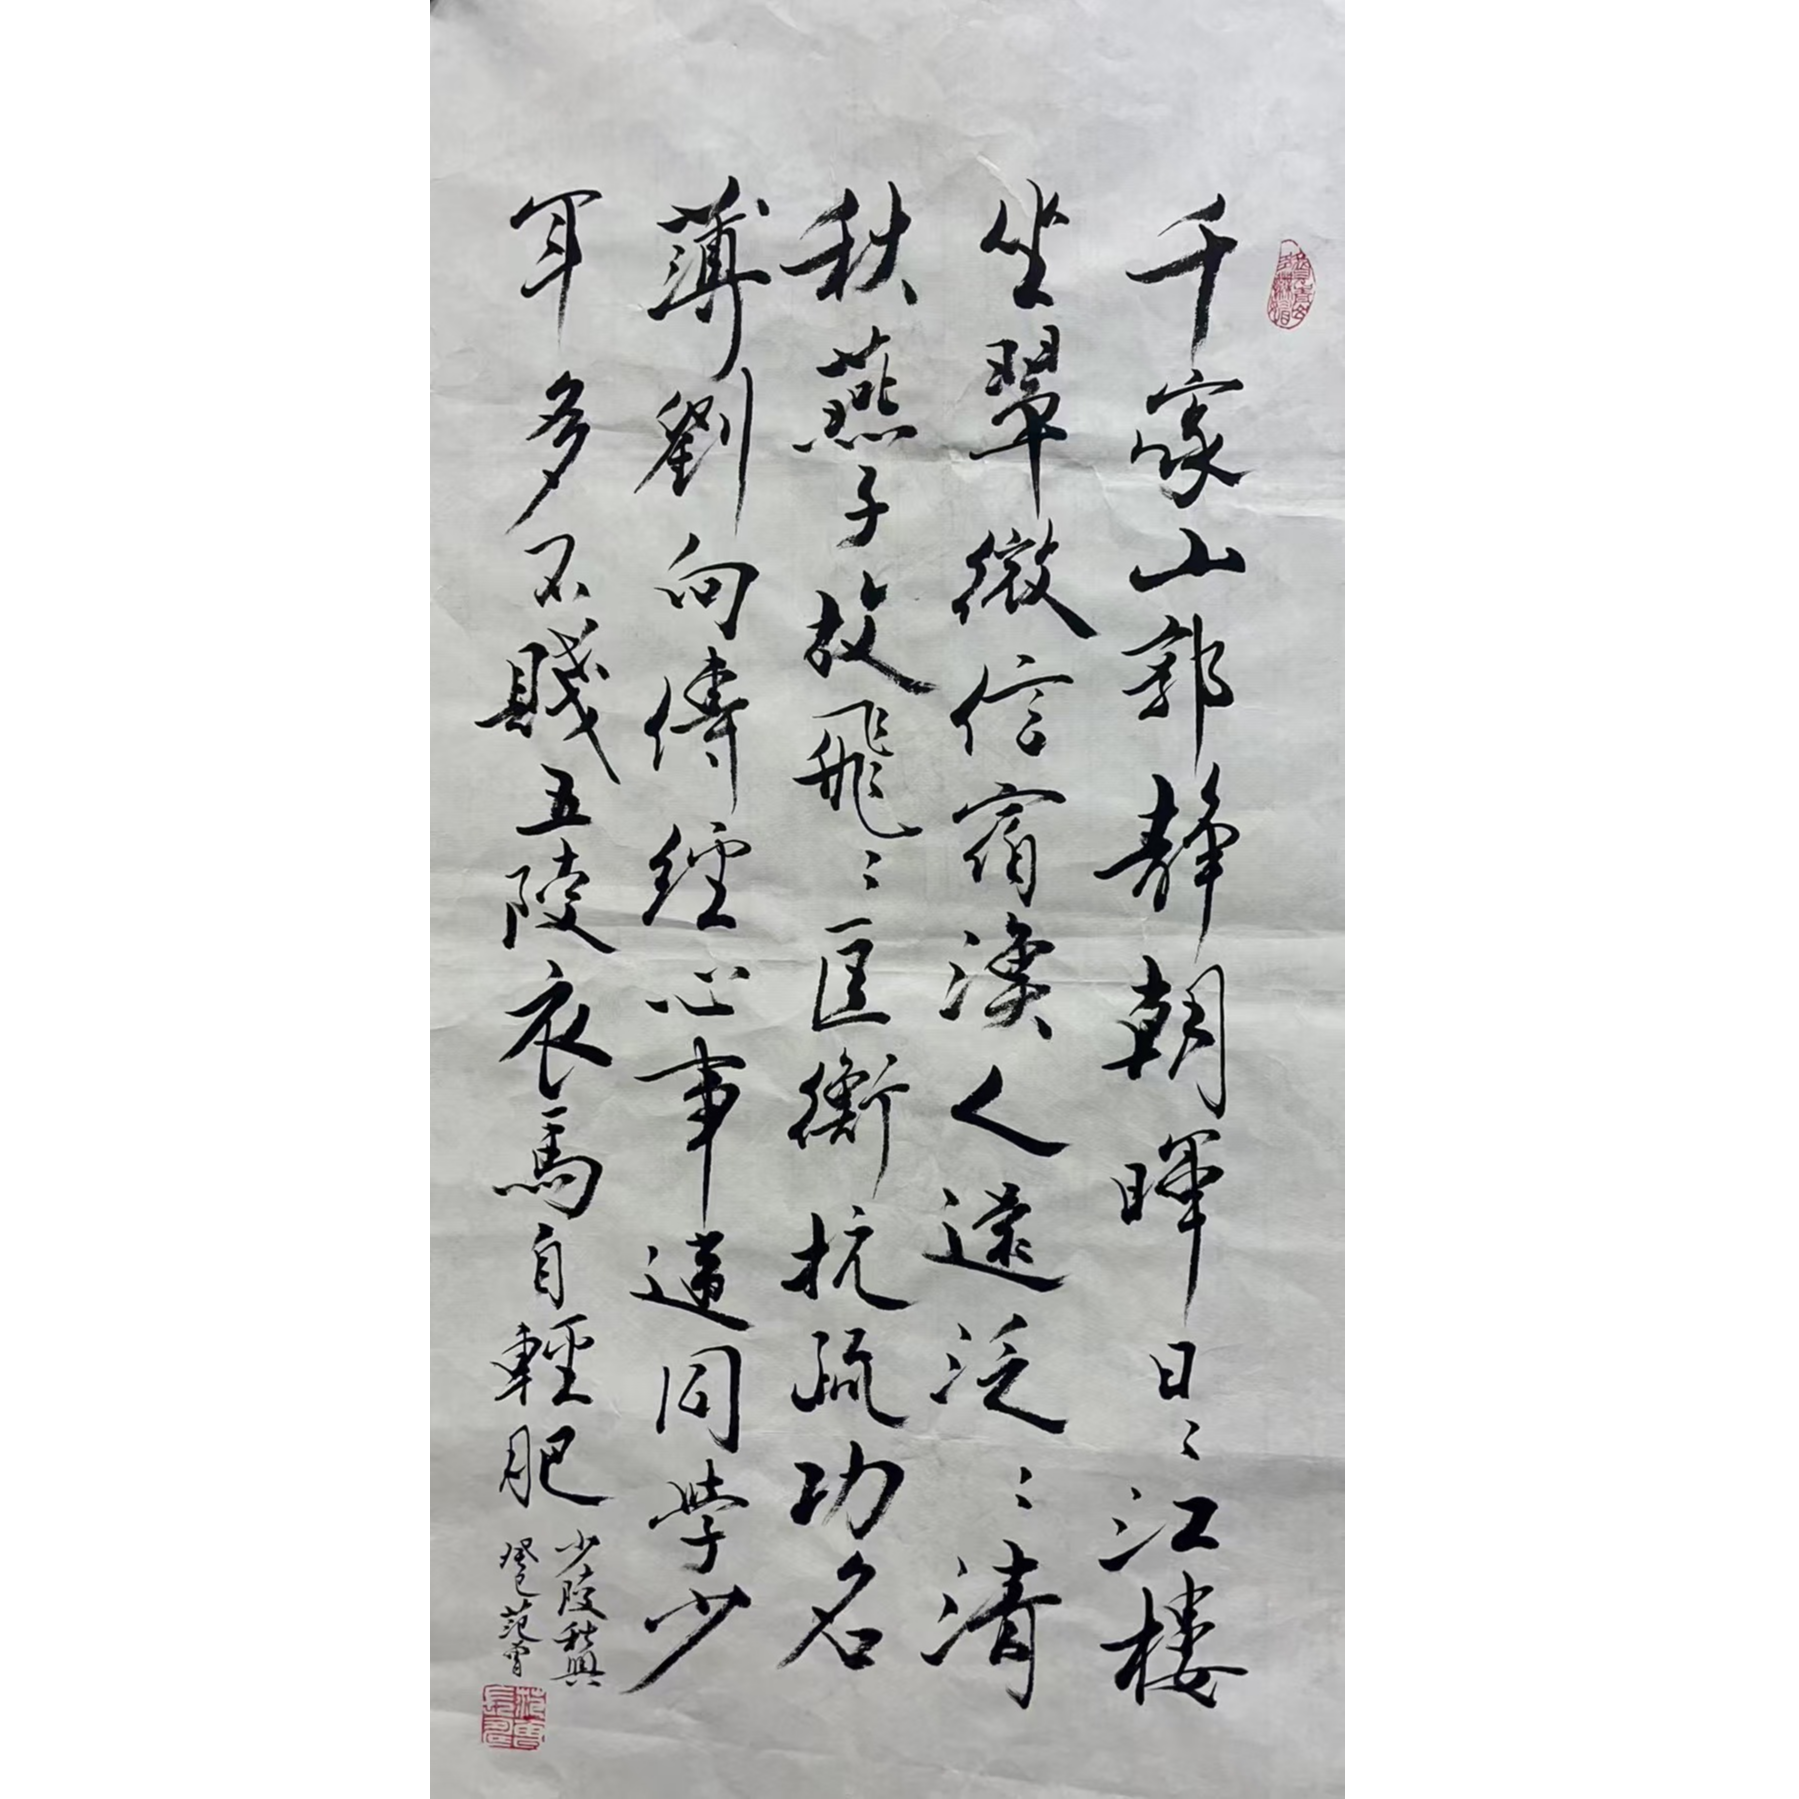 千家山郭靜朝暉日〻江樓
坐翠微信宿漁人還泛〻清
秋燕子故飛〻匡衡抗疏功名
薄劉向傳經心事違同學少
年多不賤五陵衣馬自輕肥
少陵秋興
癸巳范曾